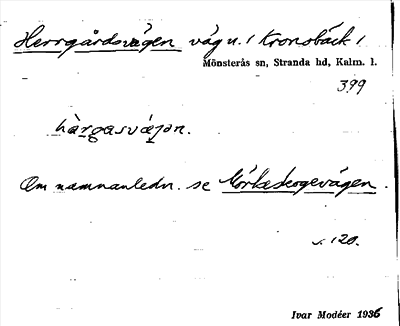 Herrgårdsvägen väg u. / Kronobäck /
Mönsterås sn, Stranda hd, Kalm. l.
399
hàrgasvæ̀jən.
Om namnanledn. se Mörkeskogevägen.
s. 120.
Ivar Modéer 1936